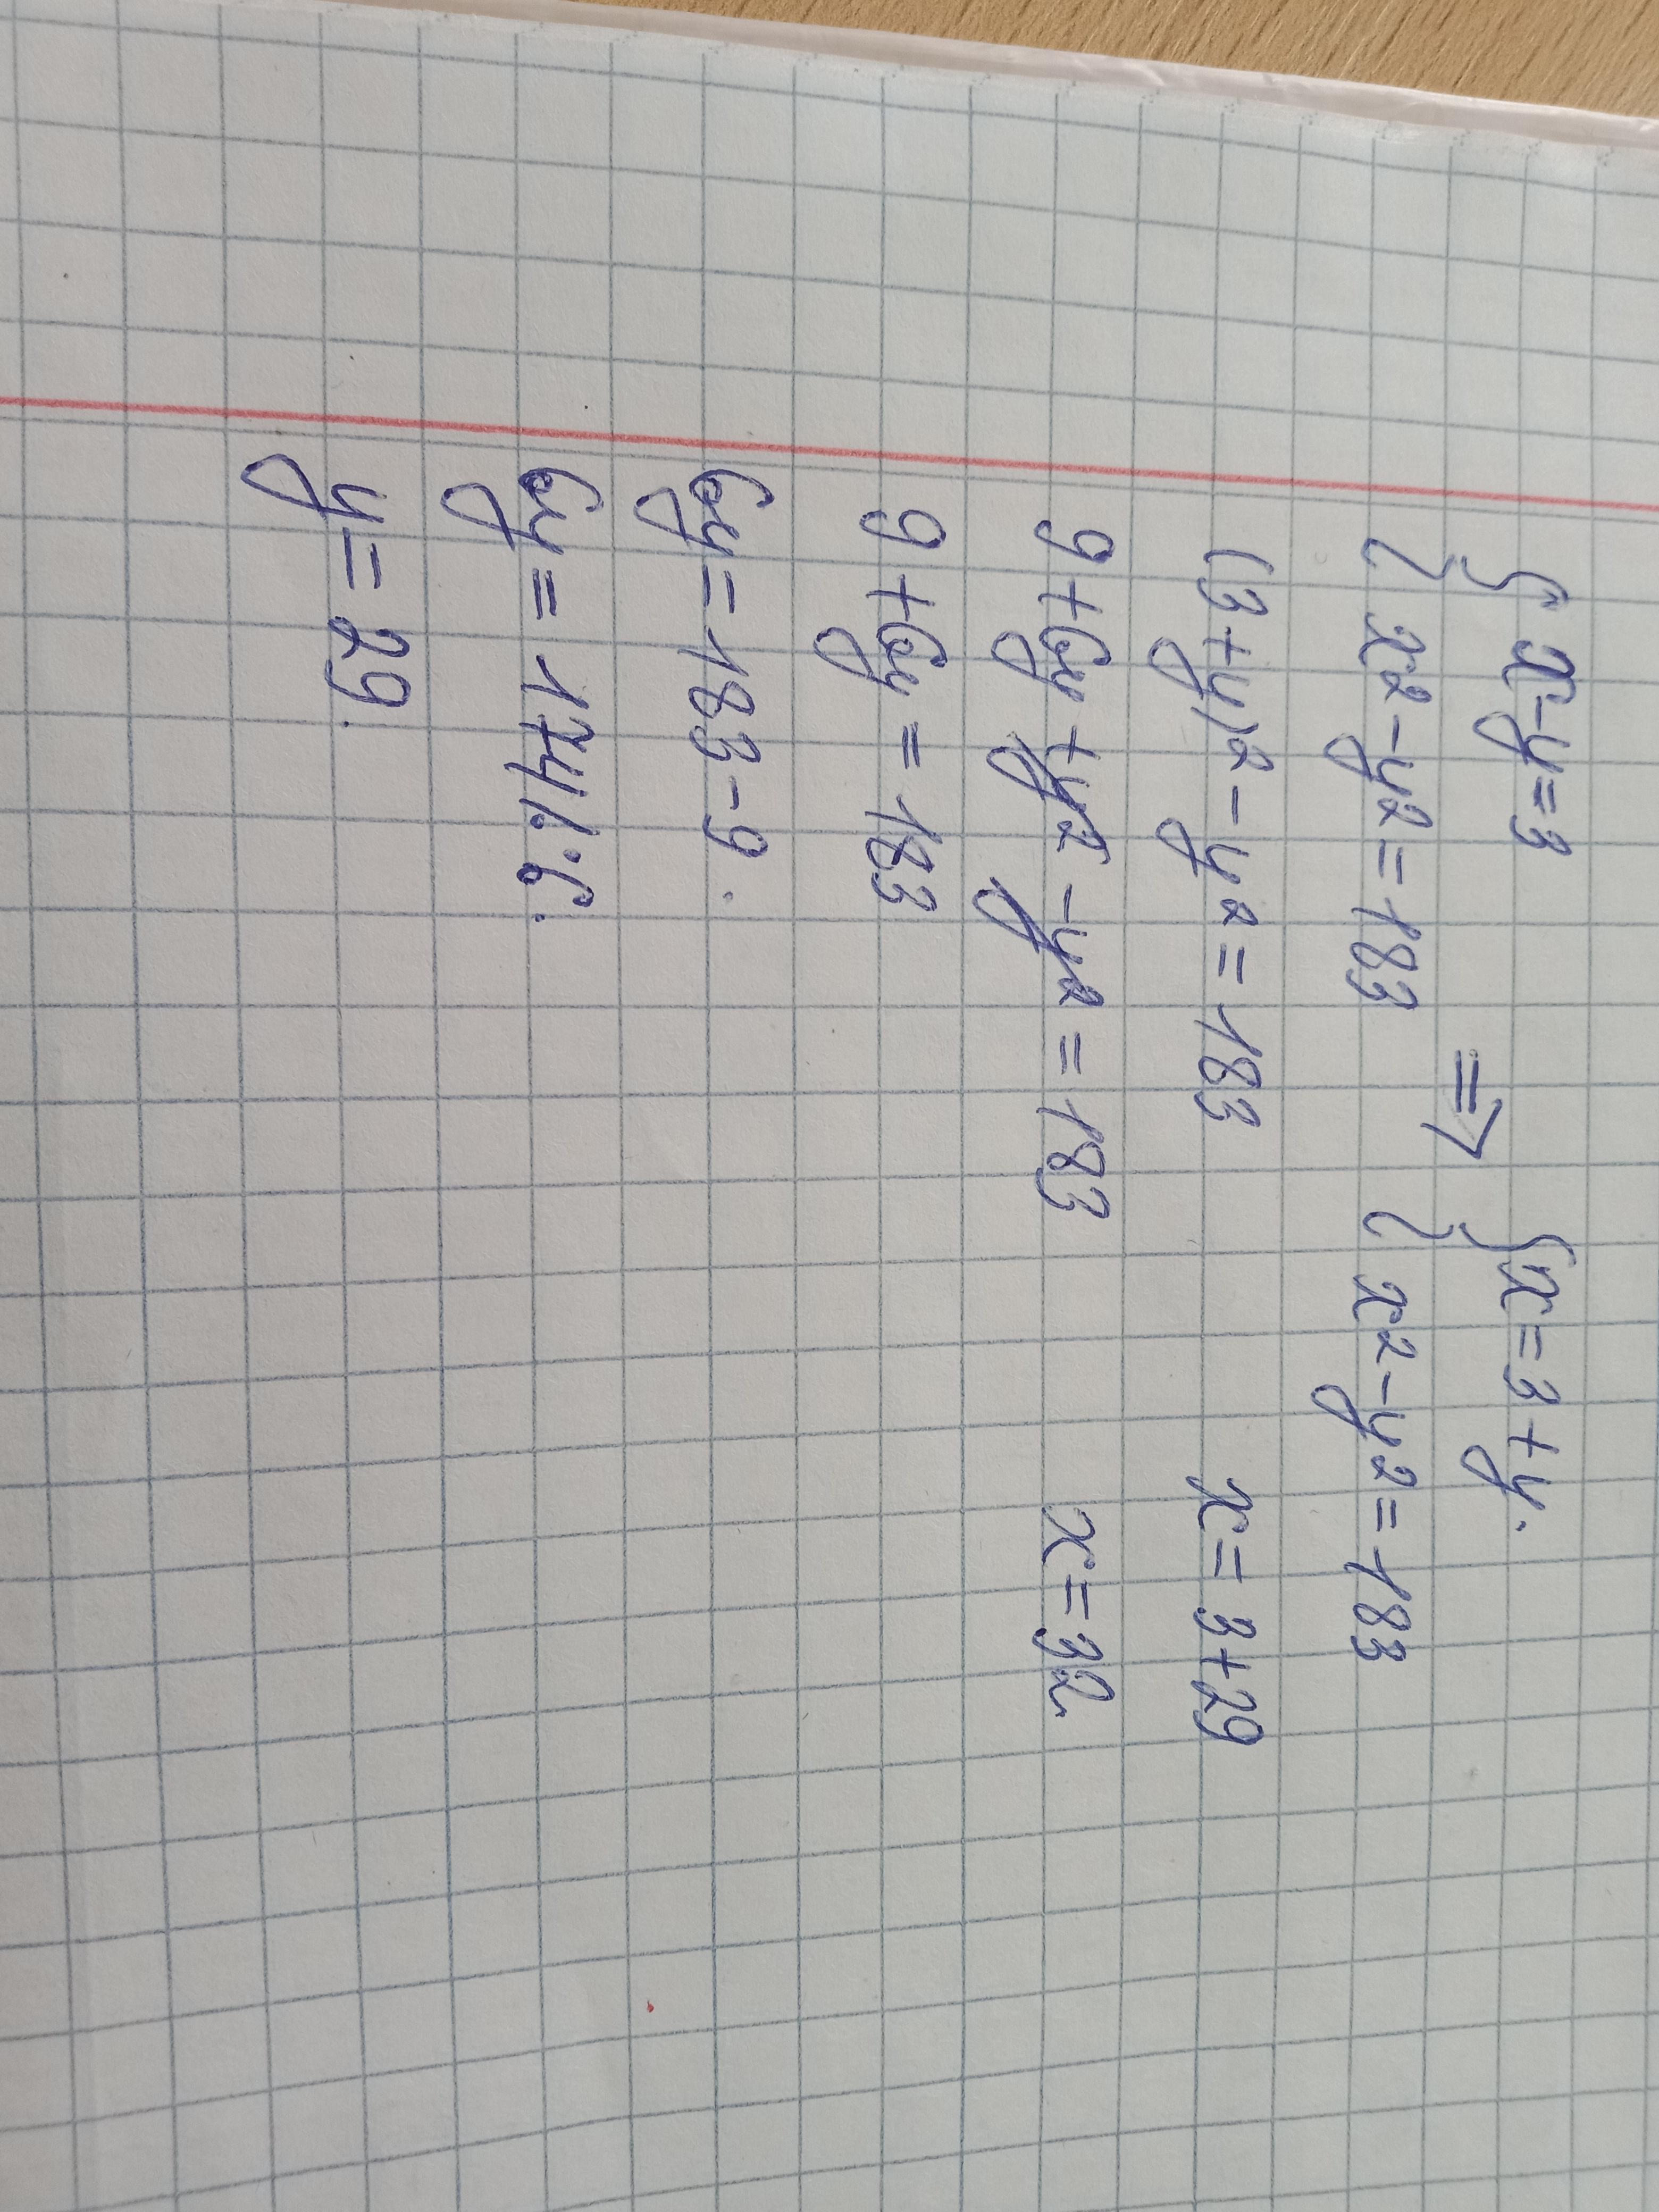 { x-y=3 => { x=3+y.
{ x²-y²=183 { x²-y²=183
(3+y)²-y²=183 x=3+29
9+6y+y²-y²=183 x=32.
9+6y=183
6y=183-9.
6y=174/:6.
y=29.